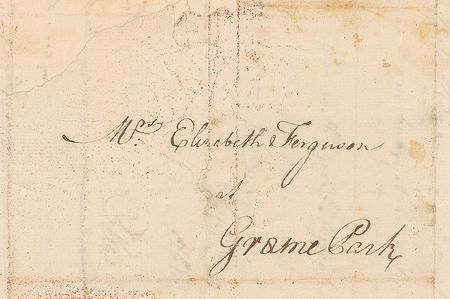 Mrs Elizabeth Ferguson
at
Græme Park